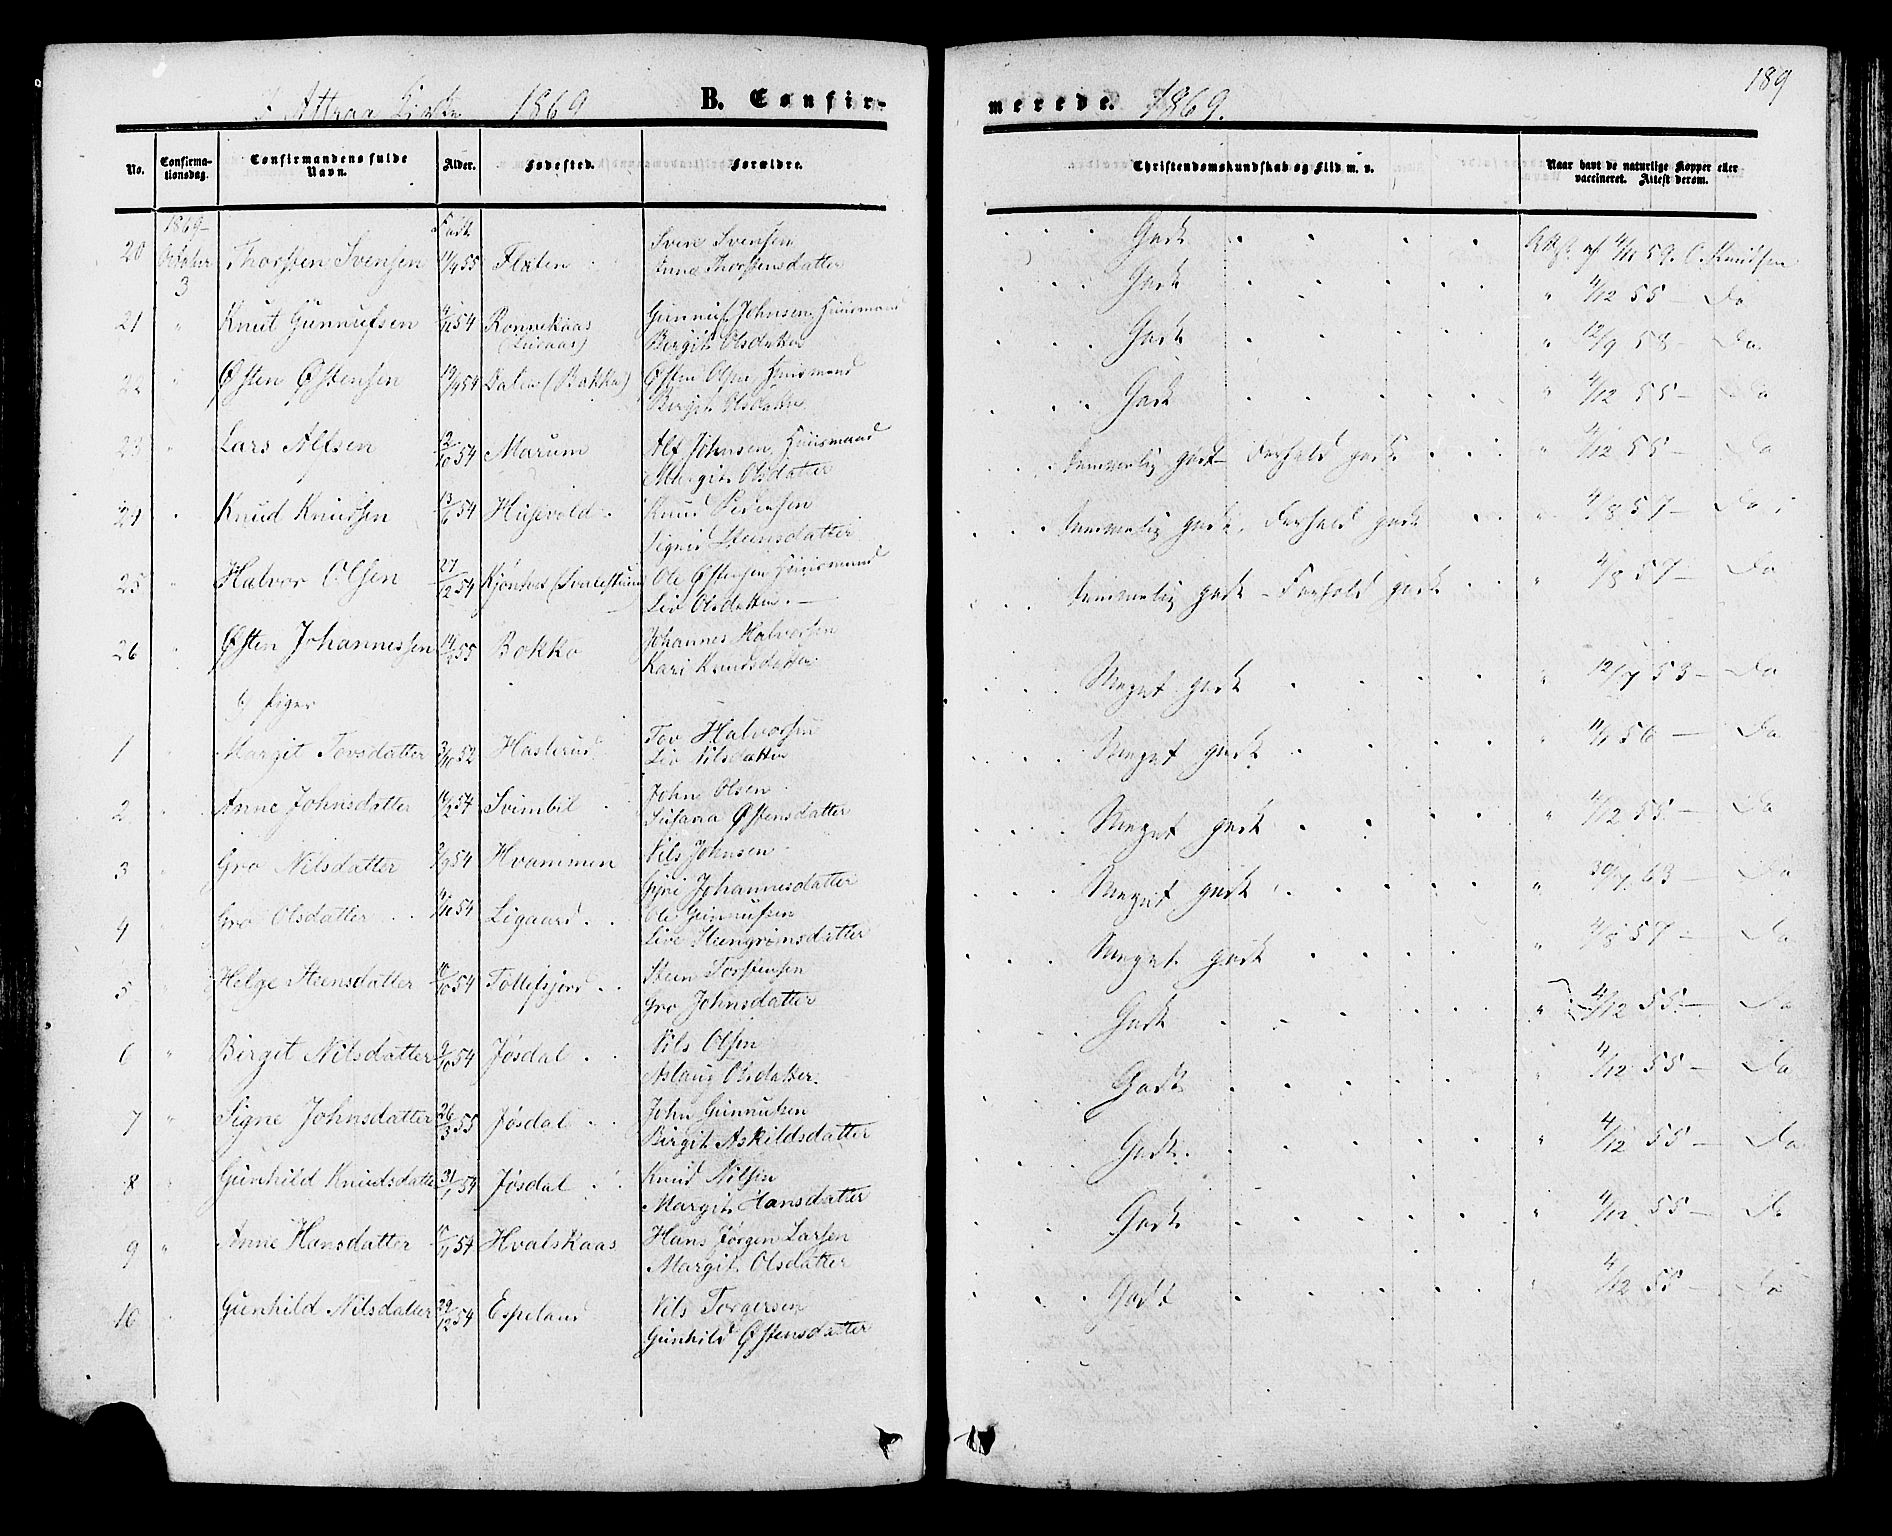 I Attraa Kirke 1869 B. Confir-
merede. 1869. 189
No. Confirmationsdag. Confirmandens fulde Navn. Alder. Fødested. Forældre.
Christendomskundskab og Flid m. v. Naar havt de naturlige Kopper eller vaccineret. Attest derom.
1869 Født
20 October 3 Thorsten Svensen 11/4 55 Flaten Svere Svensen
Anne Thorstensdatter
Godt Att. af 4/11 59. O. Knudsen
21 " Knut Gunnufsen 54 Ronnekaas Gunnuf Johnsen, Huusmand
(Luraas) Birgit Olsdatter
Godt " 4/12 55 – Do
22 " Østen Østensen 19/9 54 Dalen (Bokko) Østen Olsen Huusmand
Birgit Olsdatter
Godt " 12/9 58 – Do
23 " Lars Alfsen 12/10 54 Marum Alf Johnsen, Huusmand
Margit Olsdatter
Godt " 4/12 55 – Do
24 " Knud Knudsen 13/6 54 Husevold Knud Pedersen
Signe Steensdatter
temmelig godt – Forhold godt " 4/12 55 – Do
25 " Halvor Olsen 27/12 54 Kjontvet Ole Østensen Huusmand
Liv Olsdatter. –
temmelig godt. Forhold godt " 4/8 57 – Do
26 " Østen Johannessen 14/2 55 Bokko Johannes Halvorsen
Kari Knudsdatter
temmelig godt – Forhold godt " 4/8 57 – Do
b) Piger
1 " Margit Tovsdatter 3/10 52 Haslerud Tov Halvorsen
Liv Nilsdatter
Meget godt " 12/7 53 – Do
2 " Anne Johnsdatter 16/2 54 Svimbil John Olsen
Susana Østensdatter
Meget godt " 11/7 56 – Do
3 " Gro Nilsdatter 9/9 54 Hvammen Nils Johnsen
Gyri Johannesdatter
Meget godt " 4/12 55 – Do
4 " Gro Olsdatter 54 Ligaard Ole Gunnufsen
Live Steengrimsdatter
Meget godt " 30/7 63 – Do
5 " Helge Steensdatter 11/10 54 Tollefsjord Steen Torstensen
Gro Johnsdatter
Meget godt " 4/8 57 – Do
6 " Birgit Nilsdatter 9/10 54 Jøsdal Nils Olsen
Aslaug Olsdatter
Godt " 4/12 55 – Do
7 " Signe Johnsdatter 26/3 55 Jøsdal John Gunnufsen
Birgit Askildsdatter
Godt " 4/12 55 – Do
8 " Gunhild Knudsdatter 31/1 54 Jøsdal Knud Nilsen
Margit Hansdatter
Godt " 4/12 55 – Do
9 " Anne Hansdatter 54 Hvalskaas Hans Jørgen Larsen
Margit Olsdatter
Godt " 4/12 55 – Do
10 " Gunhild Nilsdatter 29/12 54 Espeland Nils Torgersen
Gunhild Østensdatter
Godt " 4/12 55 – Do